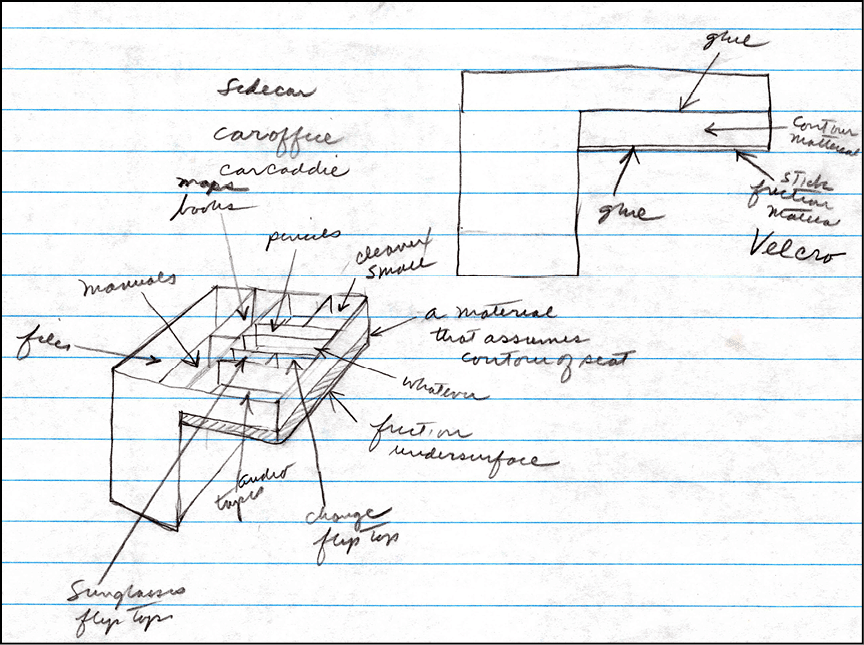 Sidecar
caroffice
carcaddie
maps
books
pencils
cleaner
small
manuals
files
glue
contour
material
glue
stick
friction
Velcro
a material
that assumes
contour of seat
whatever
friction
undersurface
audio
tapes
change
flip top
Sunglasses
flip top